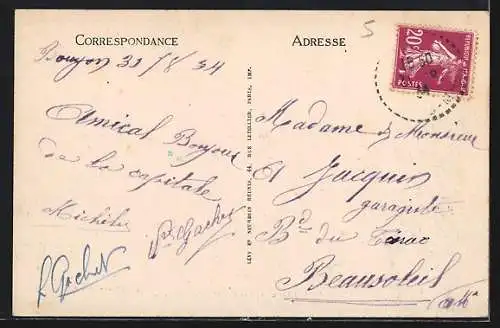 CORRESPONDANCE
ADRESSE
5
20c
POSTES
Bouyon 31/8/34
Amical Bonjour
de la capitale
Michelin
Gachet
L Gachet
LÉVY ET NEURDEIN RÉUNIS, 44, RUE LETELLIER, PARIS, IMP.
Madame & Monsieur
A Jacquin
garagiste
Bd du Ténao
Beausoleil
a/Mes